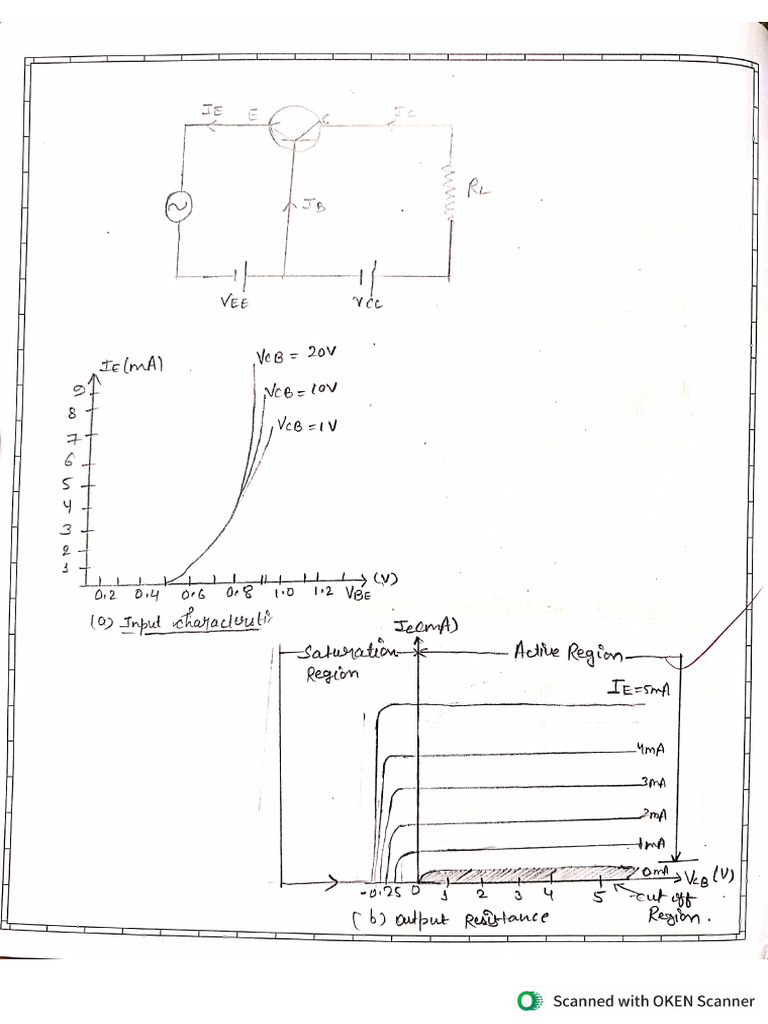 IE E C IC
IB
RL
VEE VCC
IE(mA)
VCB = 20V
VCB = 10V
VCB = 1V
9
8
7
6
5
4
3
2
1
0.2 0.4 0.6 0.8 1.0 1.2 VBE (V)
(a) Input characteristi
Ic(mA)
Saturation Region
Active Region
IE=5mA
4mA
3mA
2mA
1mA
0mA
VCB (V)
-0.25 0 1 2 3 4 5
cut off Region.
(b) output Resistance
Scanned with OKEN Scanner